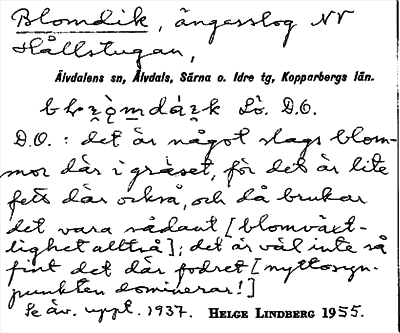 Blomdik, ängesslog NV
Hållstugan,
Älvdalens sn, Älvdals, Särna o. Idre tg, Kopparbergs län.
Lö. D.O.
D.O.: det är något slags blom-
mor där i gräset, för det är lite
fett där också, och då brukar
det vara sådant [blomväxt-
lighet alltså]; det är väl inte så
fint det där fodret [nyttosyn-
punkten dominerar!]
Se äv. uppt. 1937. HELGE LINDBERG 1955.